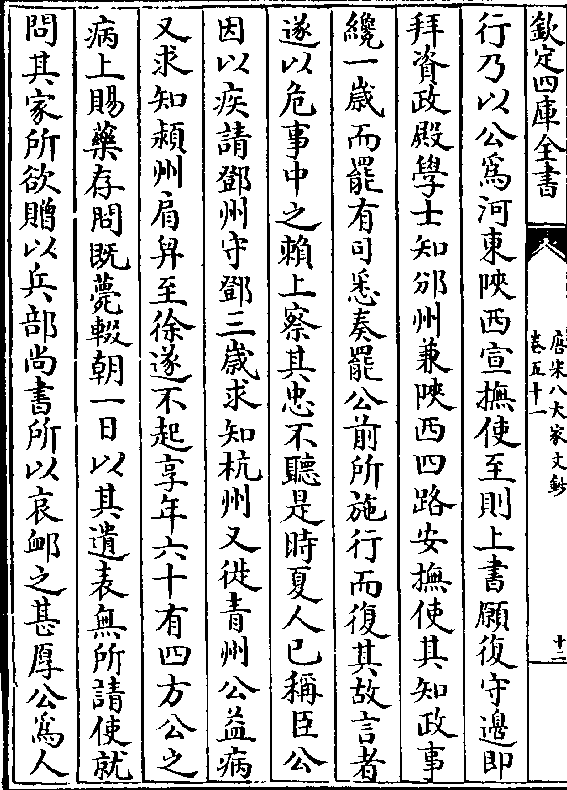 欽定四庫全書
唐宋八大家文鈔
卷五十一
十二
行乃以公為河東陜西宣撫使至則上書願復守邊即
拜資政殿學士知邠州兼陜西四路安撫使其知政事
纔一歲而罷有司悉奏罷公前所施行而復其故言者
遂以危事中之賴上察其忠不聽是時夏人已稱臣公
因以疾請鄧州守鄧三歲求知杭州又徙青州公益病
又求知潁州肩舁至徐遂不起享年六十有四方公之
病上賜藥存問既薨輟朝一日以其遺表無所請使就
問其家所欲贈以兵部尚書所以哀䘏之甚厚公為人